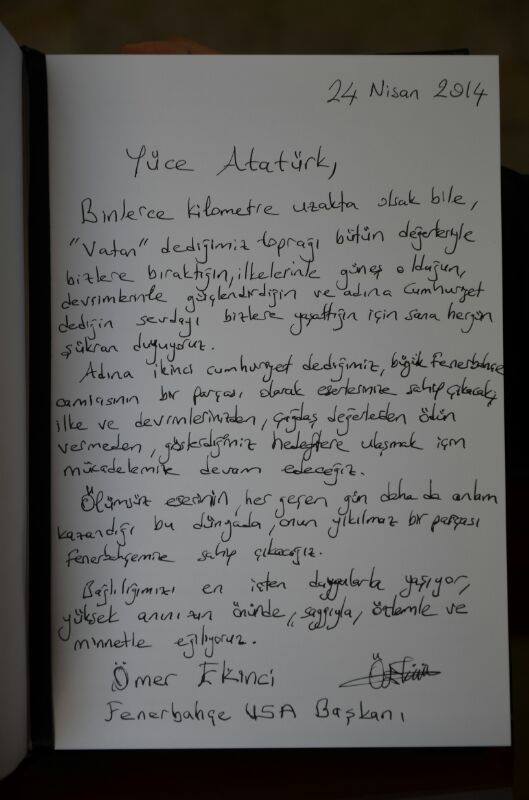 24 Nisan 2014
Yüce Atatürk,
Binlerce kilometre uzakta olsak bile,
"Vatan" dediğimiz toprağı bütün değerleriyle
bizlere bıraktığın, ilkelerinle güneş olduğun,
devrimlerinle güçlendirdiğin ve adına cumhuriyet
dediğin sevdayı bizlere yaşattığın için sana hergün
şükran duyuyoruz.
Adına ikinci cumhuriyet dediğimiz, büyük Fenerbahçe
camiasının bir parçası olarak eserlerinize sahip çıkacak,
ilke ve devrimlerinizden, çağdaş değerlerden ödün
vermeden, gösterdiğiniz hedeflere ulaşmak için
mücadelemize devam edeceğiz.
Ölümsüz eserinin, her geçen gün daha da anlam
kazandığı bu dünyada, onun yıkılmaz bir parçası
Fenerbahçemize sahip çıkacağız.
Bağlılığımızı en içten duygularla yaşıyor,
yüksek anınızın önünde, saygıyla, özlemle ve
minnetle eğiliyoruz.
Ömer Ekinci
Fenerbahçe USA Başkanı